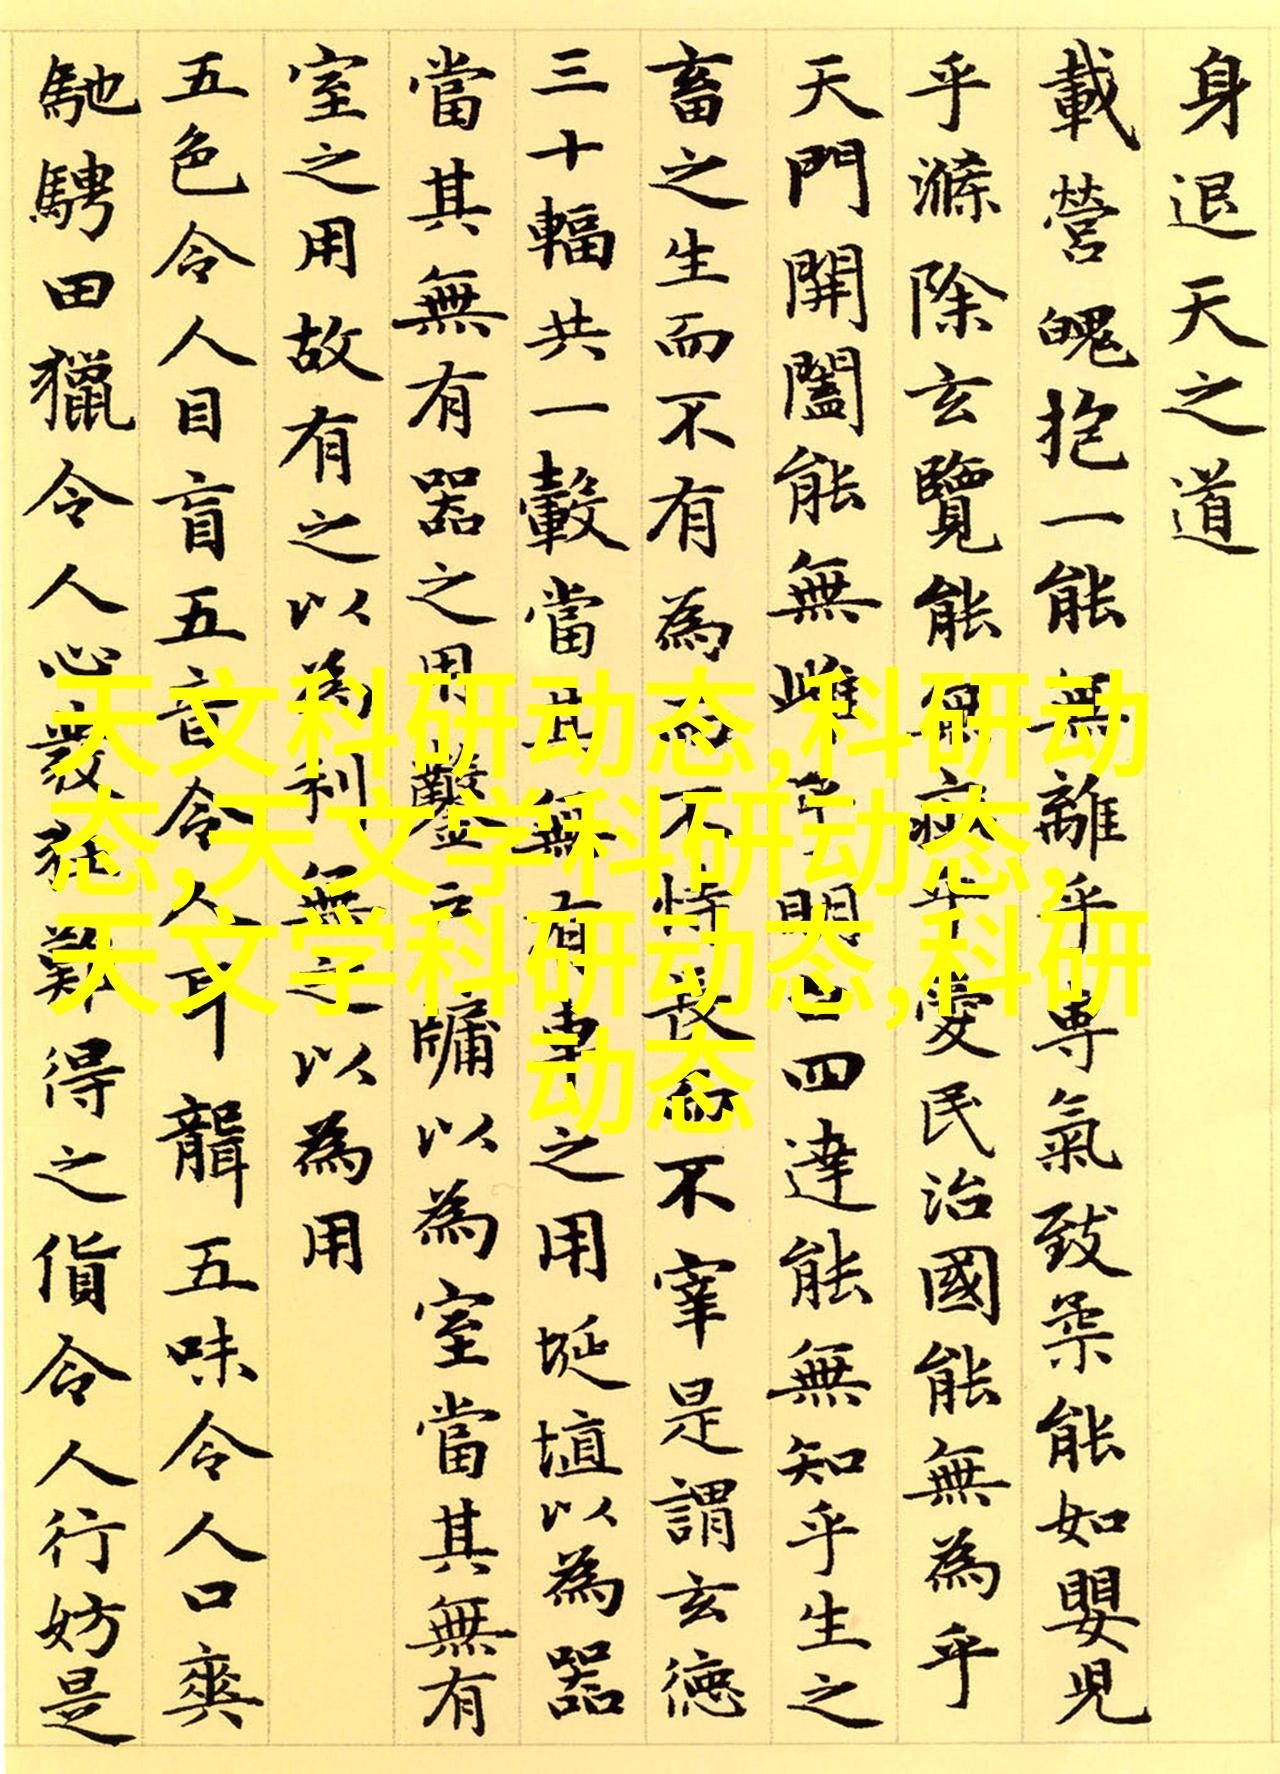 身退天之道
載營魄抱一能無離乎專氣致柔能如嬰兒
乎滌除玄覽能無疵乎愛民治國能無為乎
天門開闔能無雌乎明白四達能無知乎生之
畜之生而不有為而不恃長而不宰是謂玄德
三十輻共一轂當其無有車之用埏埴以為器
當其無有器之用鑿戶牖以為室當其無有
室之用故有之以為利無之以為用
五色令人目盲五音令人耳聾五味令人口爽
馳騁田獵令人心發狂難得之貨令人行妨是
天文科研动态,科研动
态,天文学科研动态,
天文学科研动态,科研
动态